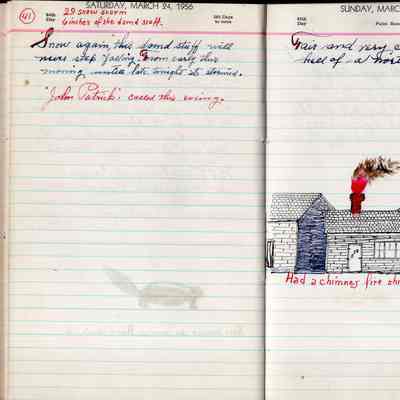 SATURDAY, MARCH 24, 1956
41
84th Day
29 snow storm
282 Days to come
6 inches of the damd stuff.
Snow again, this damd stuff will
never stop falling. From early this
morning untill late tonight it stormed.
"John Patrick" called this evening.
SUNDAY, MARC
85th Day
Palm Sun
Fair and very c
hell of a
Had a chimney fire